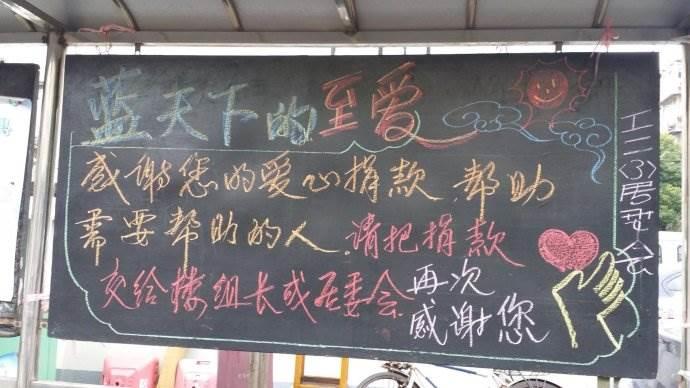 蓝天下的至爱
感谢您的爱心捐款,帮助
需要帮助的人.请把捐款
交给楼组长或居委会.再次
感谢您
工二(3)居委会